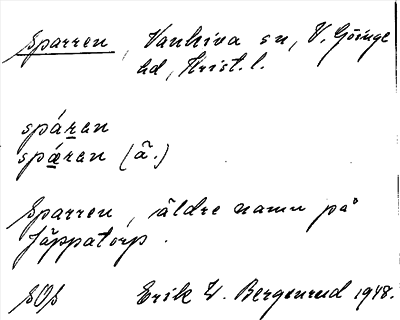 Sparren, Vankiva sn, V. Göinge
hd, Krist. l.
spáran
spǽran (ä.)
Sparren, äldre namn på
Jäppatorp.
SOS
Erik W. Bergenrud 1948.